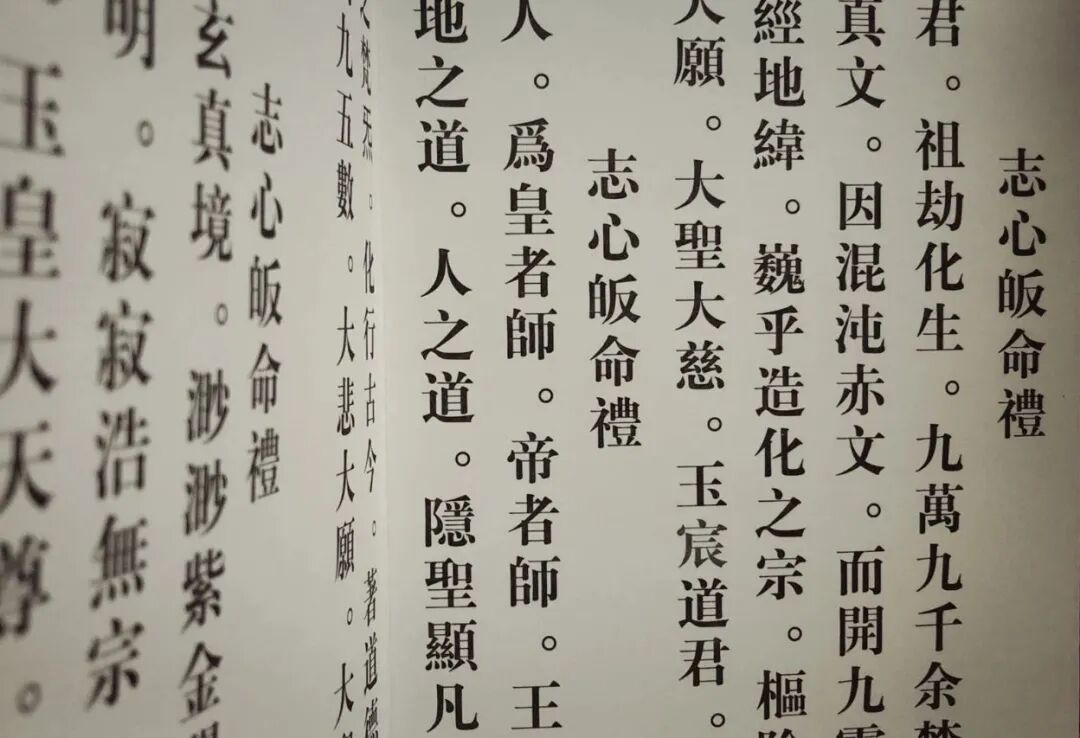 志心皈命禮
君。祖劫化生。九萬九千余梵
真文。因混沌赤文。而開九
經地緯。巍乎造化之宗。樞
大願。大聖大慈。玉宸道君。
志心皈命禮
人。爲皇者師。帝者師。王
地之道。人之道。隱聖顯凡
梵炁。化行古今。著道德
九五數。大悲大願。大
志心皈命禮
玄真境。渺渺紫金
明。寂寂浩無宗
。玉皇大天尊。